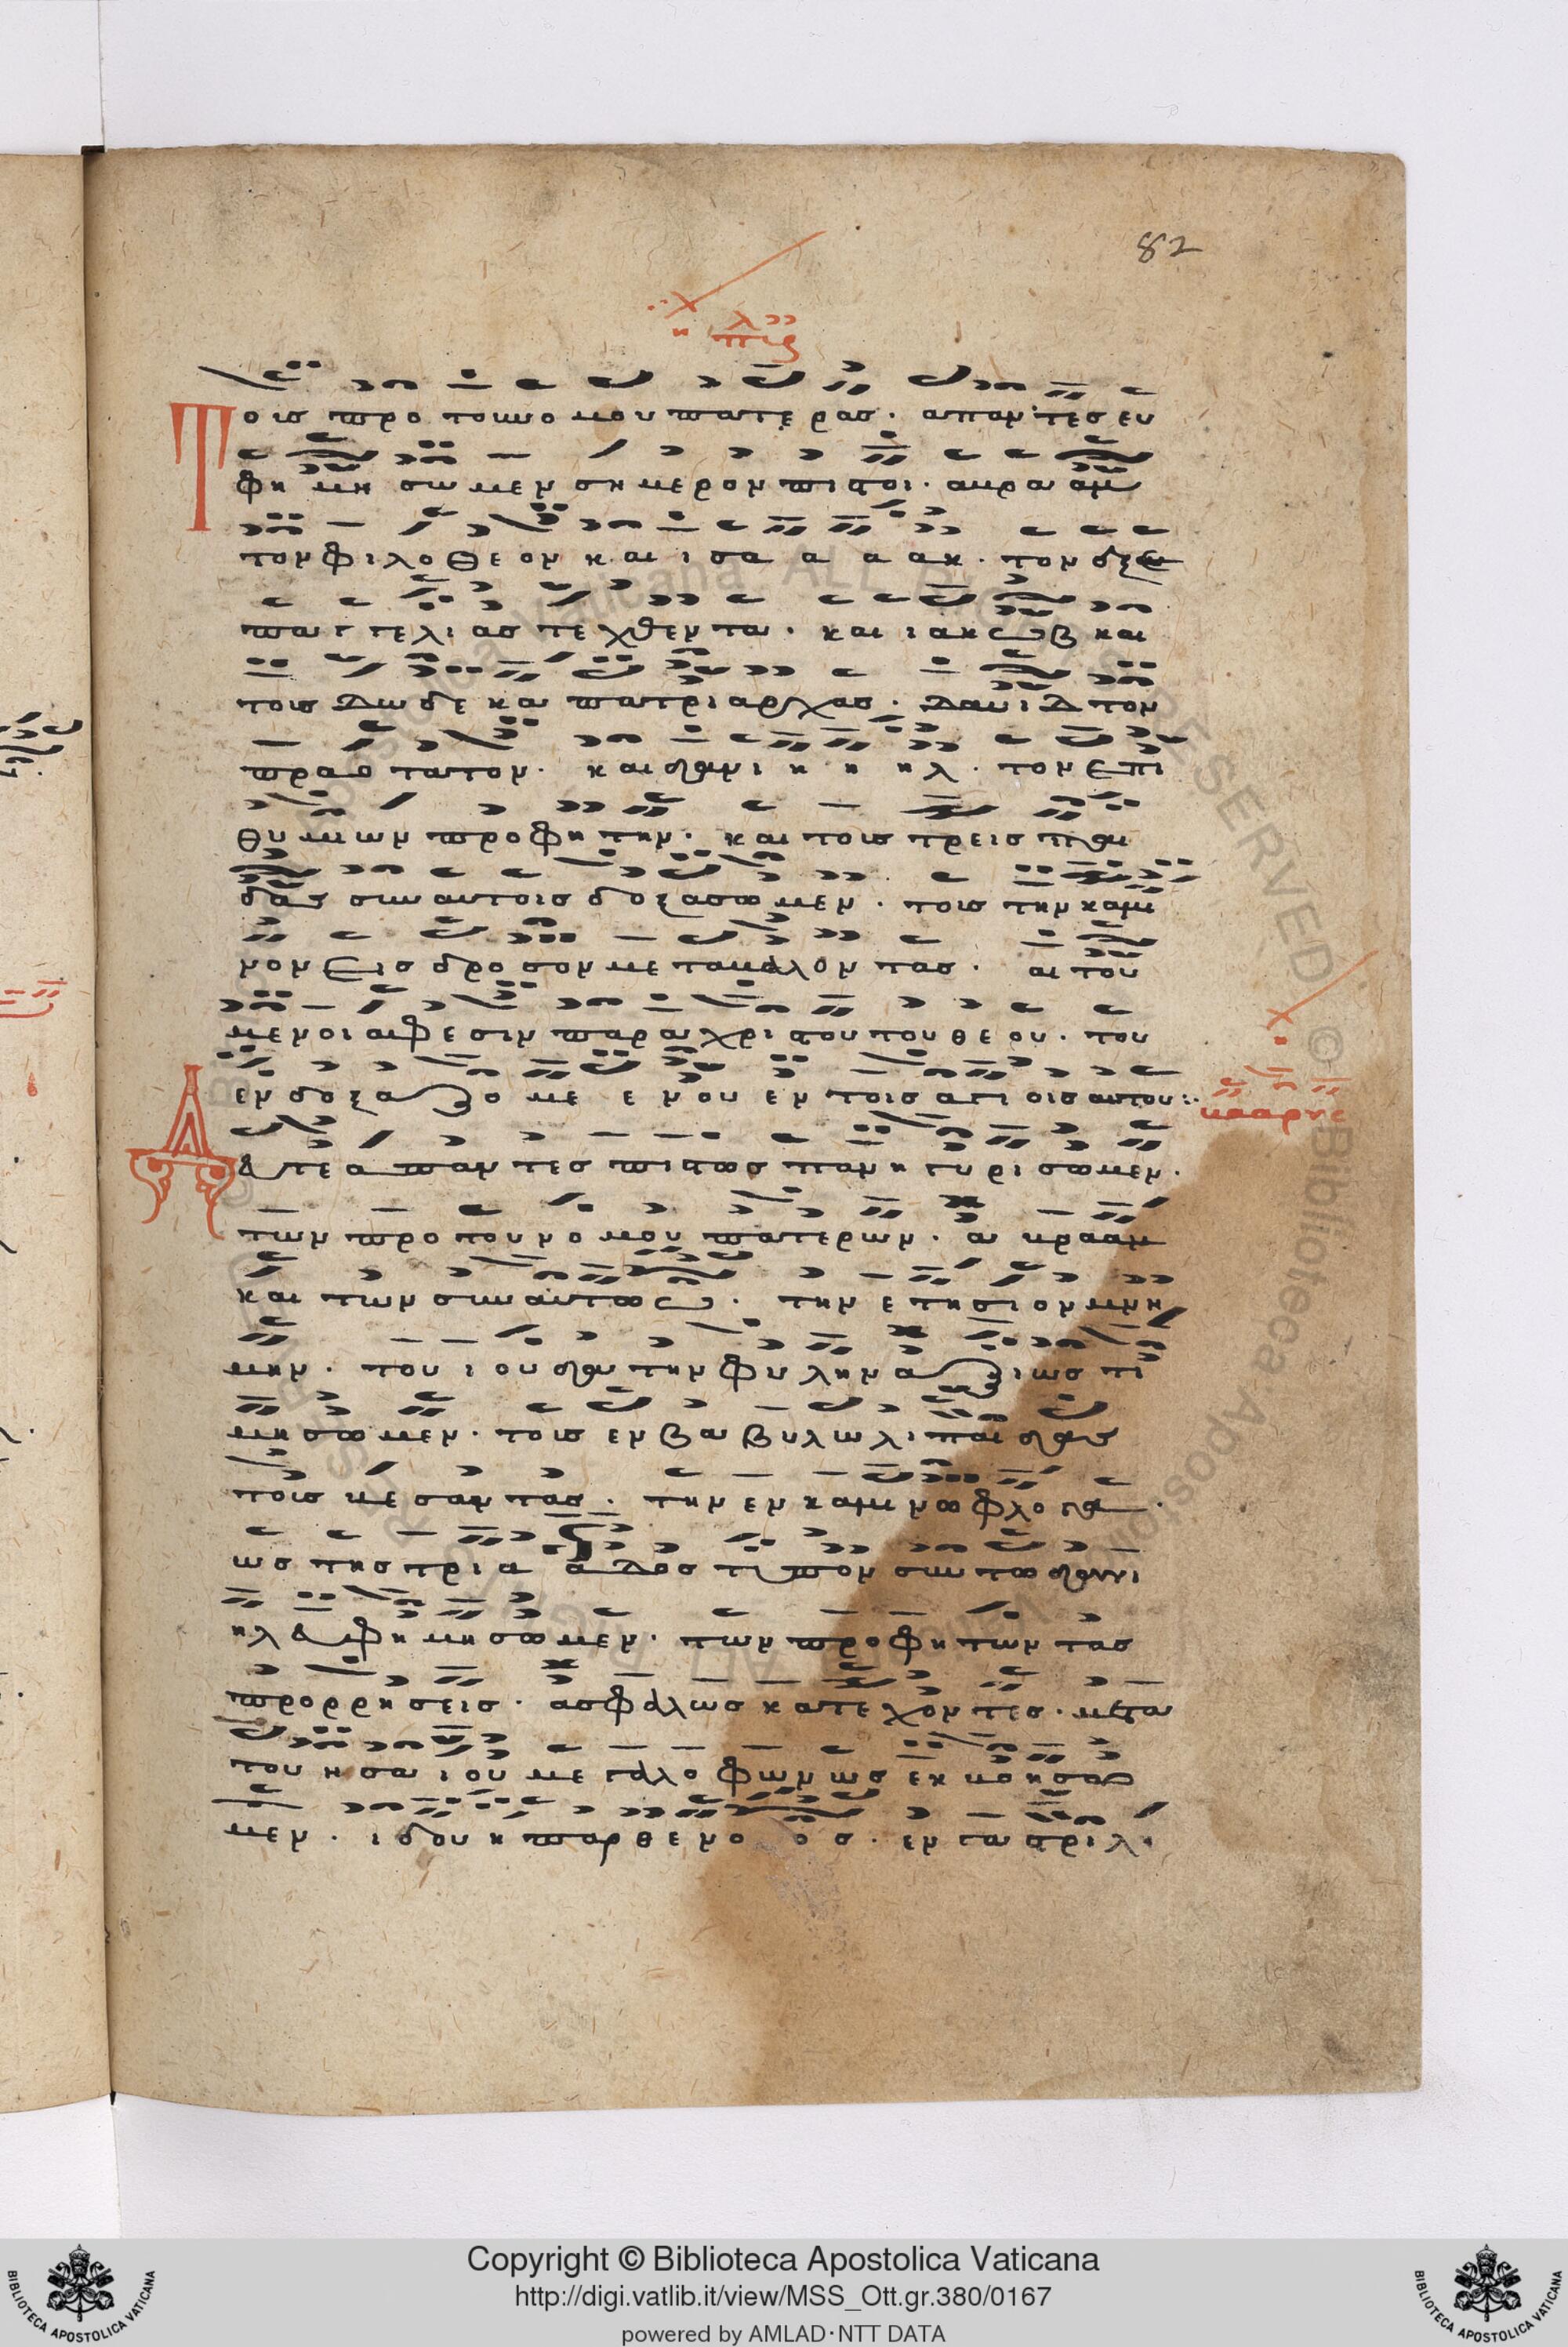 82
Τοισ προ του νομου πατερασ · απαντεσ ευ
φη μη σω μεν ση μερον πιστοι · αβρα αμ
τον φιλοθεον και ισα α α ακ · τον εξ επ
παγγελιασ τεχθεντα · και ιακωβ και
τουσ δωδεκα πατριαρχασ · δαυιδ τον
πραοτατον · και δανι η η ηλ · τον επι
θυμιων προφητην · και τουσ τρεισ παι
δασ συν αυτοισ δοξασωμεν · τουσ την καμι
νον εισ δροσον μεταβαλοντασ · αιτου
μενοι αφεσιν παρα χριστου του θεου · του
ενδοξαζομε ενου εν τοισ αγιοισ αυτου :·
Δευτε απαντεσ πιστωσ πανηγυρισωμεν ·
των προ του νομου πατερων · αβρααμ
και των συν αυτω ω · την ετησιον μνη
μην · του ιουδα την φυλην αξιωσ τι
μησωμεν · τουσ εν βαβυλωνι παιδασ
τουσ σβεσαντασ · την εν καμινω φλογα ·
ωσ τησ τρια αδοσ τυπον συν τω δανι
ηλ ευφημησωμεν · των προφητων τασ
προρρησεισ · ασφαλωσ κατεχοντεσ · μετα
του ησαιου μεγαλοφωνωσ εκβοησω
μεν · ιδου η παρθενο οσ · εν γαστρι λη
Copyright © Biblioteca Apostolica Vaticana
http://digi.vatlib.it/view/MSS_Ott.gr.380/0167
powered by AMLAD·NTT DATA